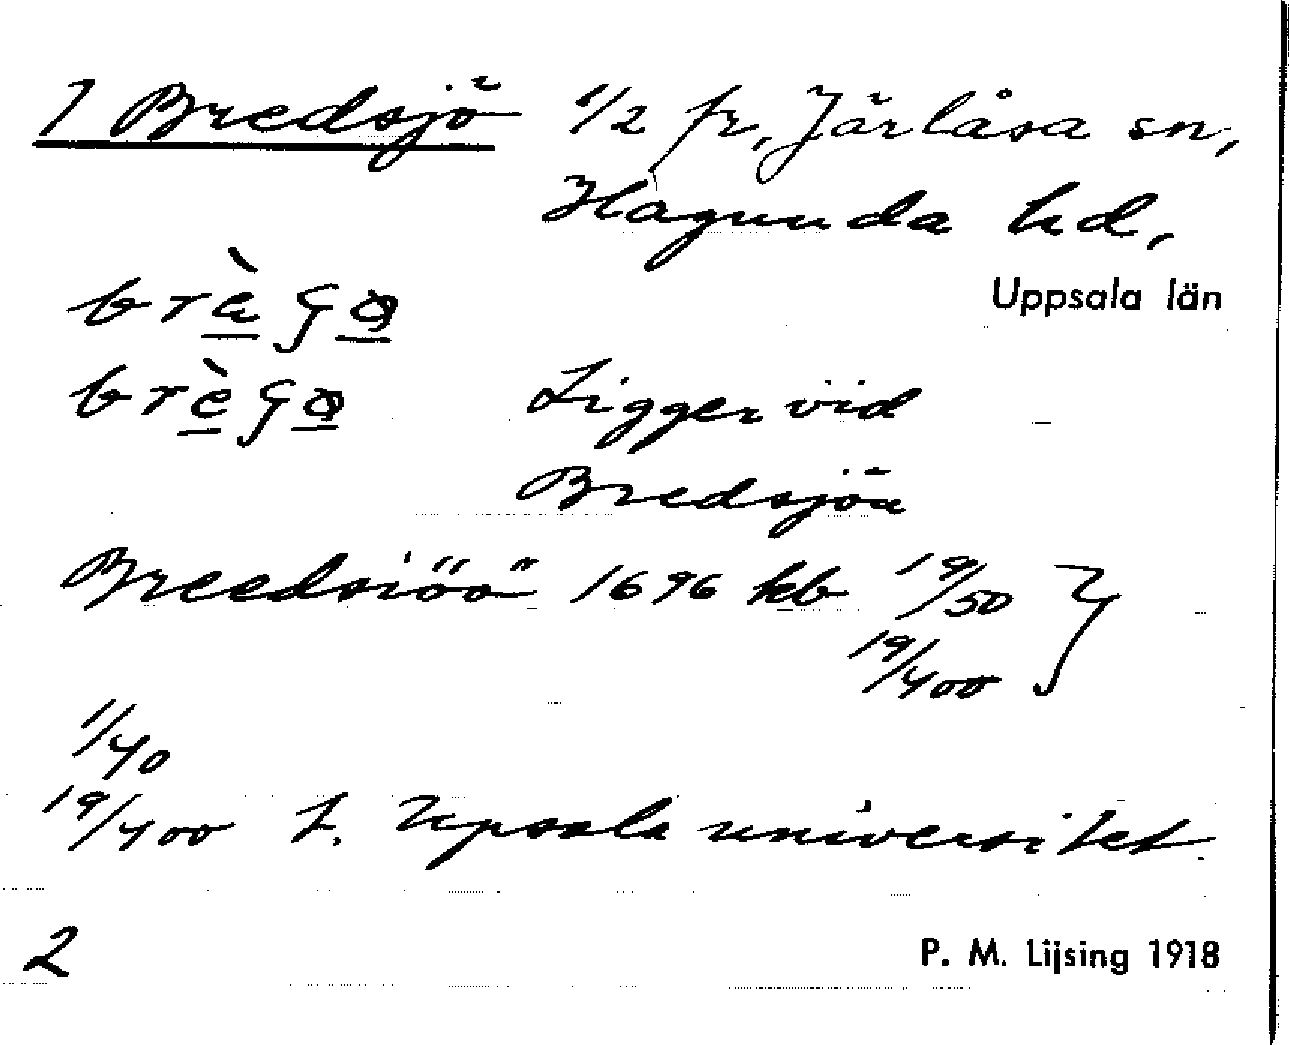 1 Bredsjö 1/2 fr, Järlåsa sn,
Hagunda hd,
Uppsala län
Ligger vid
Bredsjön
Breedsiöö 1696 kb 19/50
19/400
1/40
19/400 t. Upsala universitet.
2
P. M. Lijsing 1918